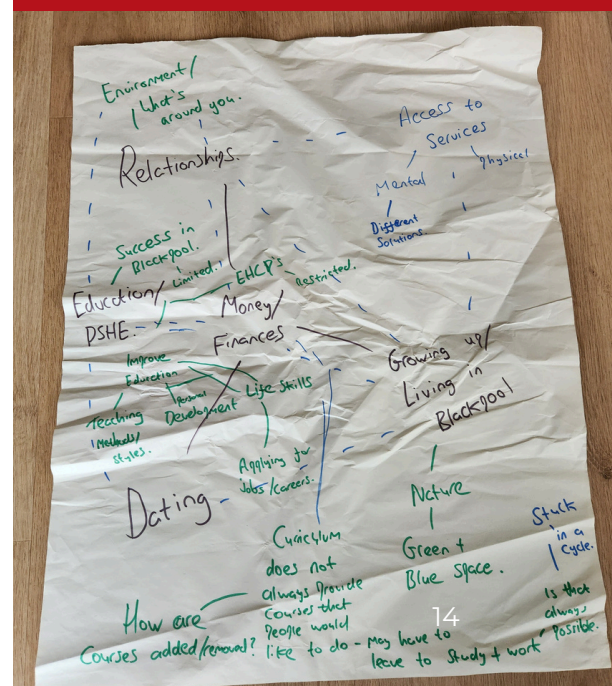 Environment/
What's
around you.
Relationships.
Access to
Services
Mental
Physical
Different
Solutions.
Success in
Blackpool.
Limited.
EHCP's
Restricted.
Education/
PSHE.
Money/
Finances
Growing up/
Living in
Blackpool
Improve
Education
Personal
Development
Life Skills
Teaching
Methods/
Styles.
Applying for
Jobs/careers.
Dating
Nature
Green +
Blue Space.
Stuck
in a
cycle.
Is that
always
possible.
Curiculum
does not
always provide
courses that
people would
like to do - may have to
leave to study + work
How are
Courses added/removed?
14